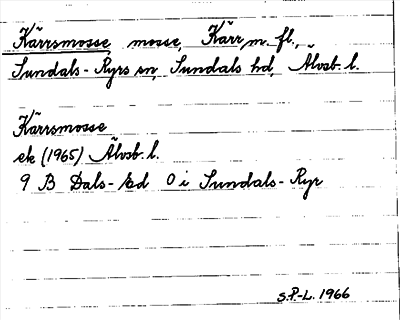 Kärrsmosse, mosse, Kärr m. fl.,
Sundals-Ryrs sn, Sundals hd, Älvsb. l.
Kärrsmosse
ek (1965) Älvsb. l.
9 B Dals-Ed 0 i Sundals-Ryr
S.P.-L. 1966